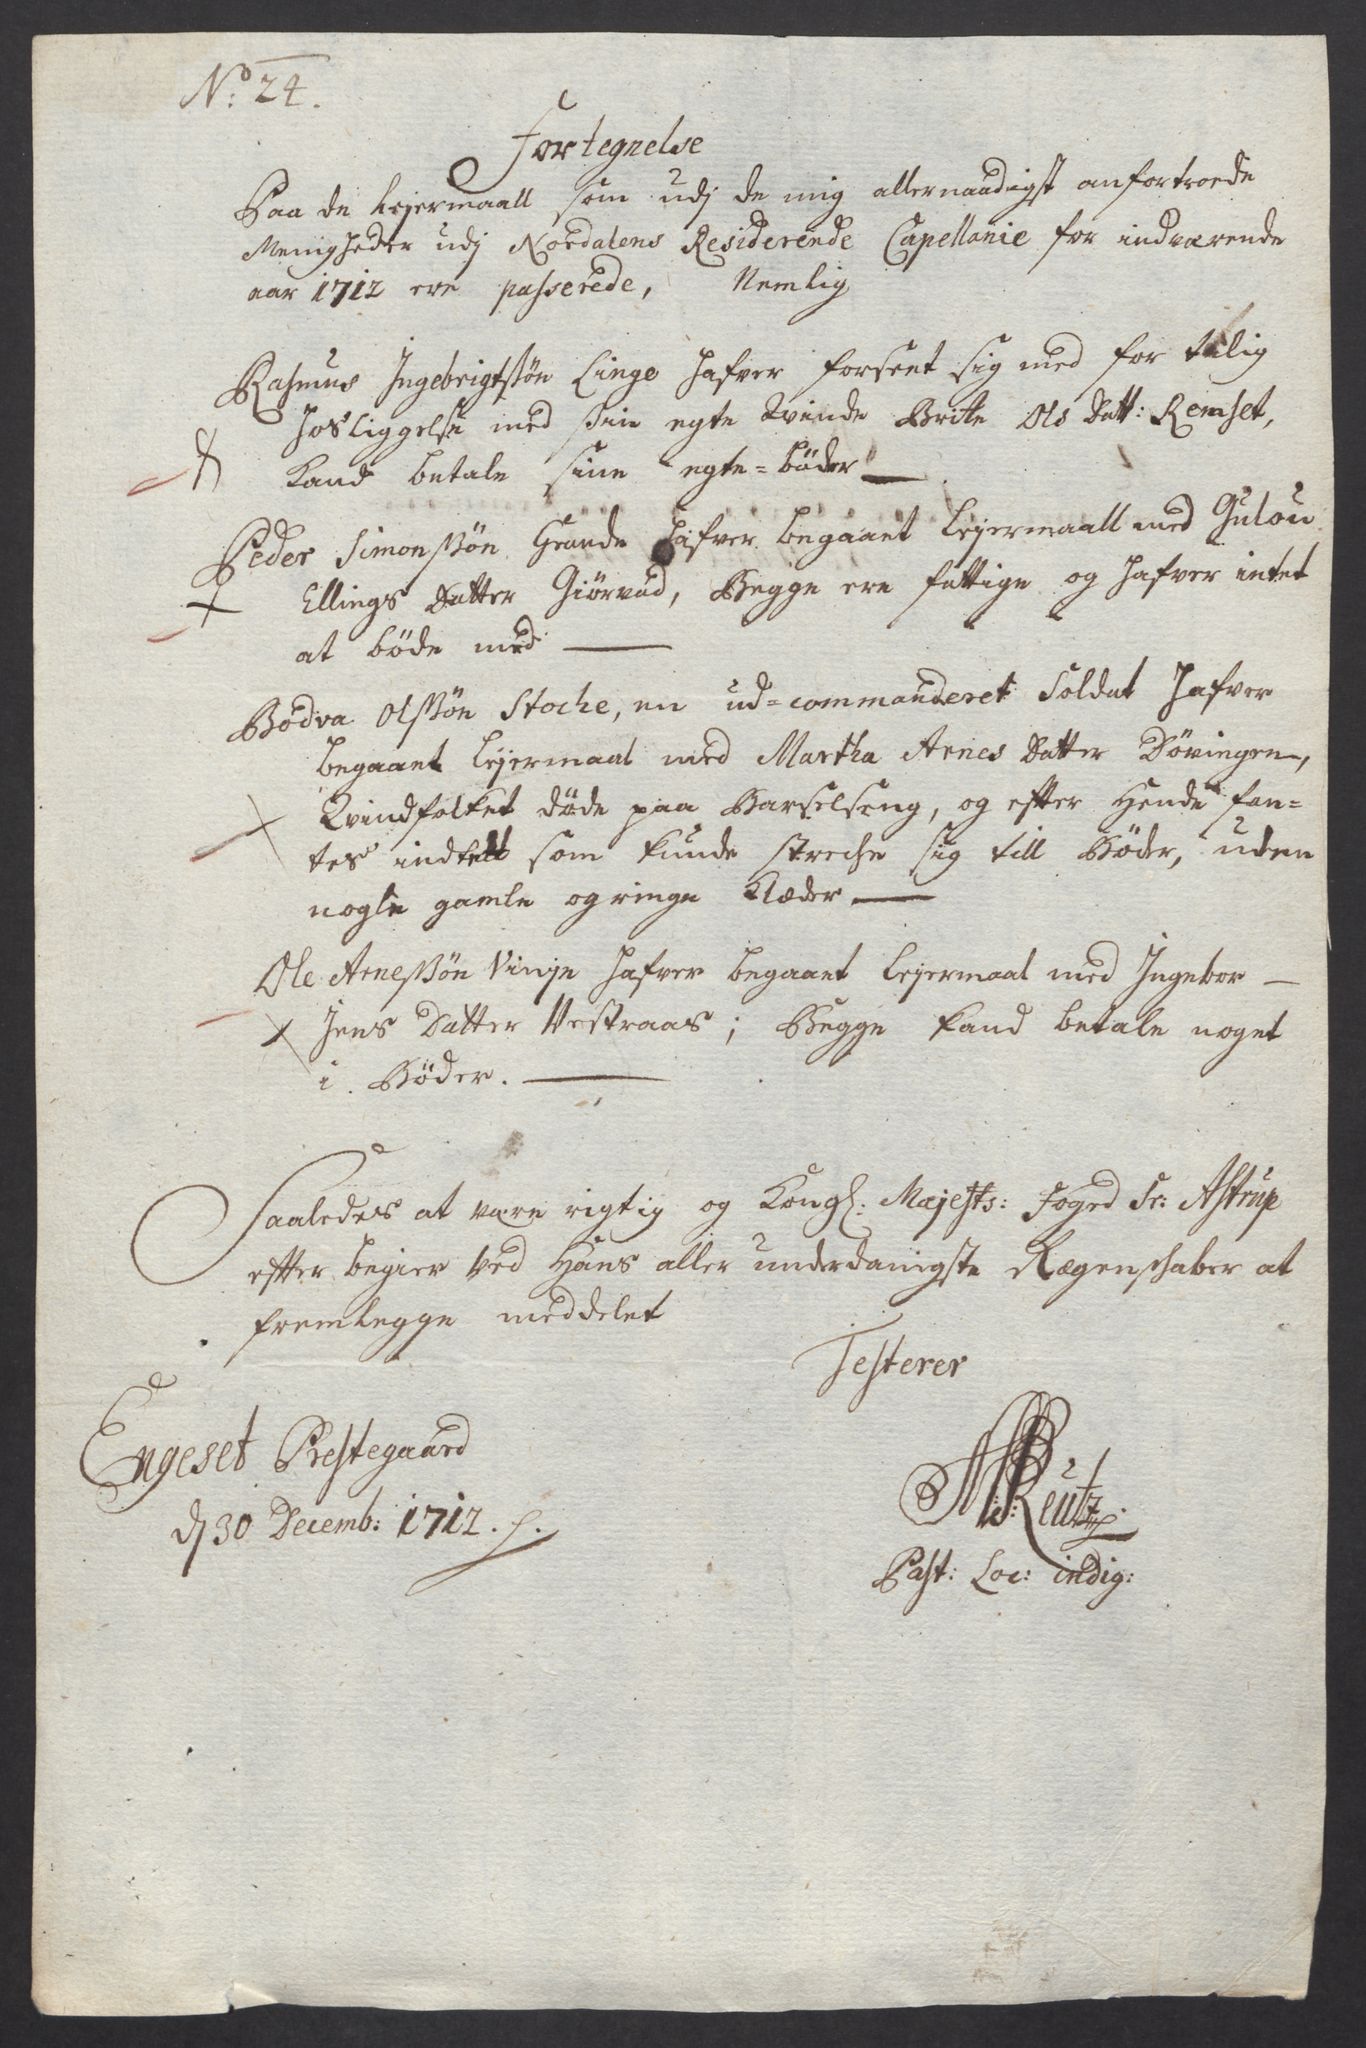 No: 24.
Fortegnelse
Paa de Lejermaall som udj de mig allernaadigst anfortroede
Menigheder udj Nordalens Residerende Capellanie for indværende
aar 1712 ere passerede, Nemlig
Rasmus Ingebrigtssøn Linge hafver forseet sig med for tilig
hosliggelse med sin egte Qvinde Brite Ols Datt: Remset,
kand betale sine egte=bøder
Peder Simonssøn Grande hafver begaaet Lejermaall med Gulou
Ellings Datter Giørvad, Begge ere fattige og hafver intet
at bøde med
Bødva Olssøn Stoche, en ud=commanderet Soldat hafver
begaaet Lejermaal med Martha Arnes Datter Døvingen,
Qvindfolket døde paa Barselseng, og efter Hende fan=
tes indtet som kunde streche sig till Bøder, uden
nogle gamle og ringe Klæder
Ole Arnessøn Vinje hafver begaaet Lejermaal med Ingebor
Jens Datter Vestraas; Begge kand betale noget
i Bøder.
Saaledes at være rigtig og Kongl: Majests: Foged Sr: Astrup
efter begier ved Hans aller underdanigste Rægenskaber at
fremlegge meddelet
Testerer
Engeset Prestegaard
d 30 Decemb: 1712.
Reutz
Past: Loc: indig: